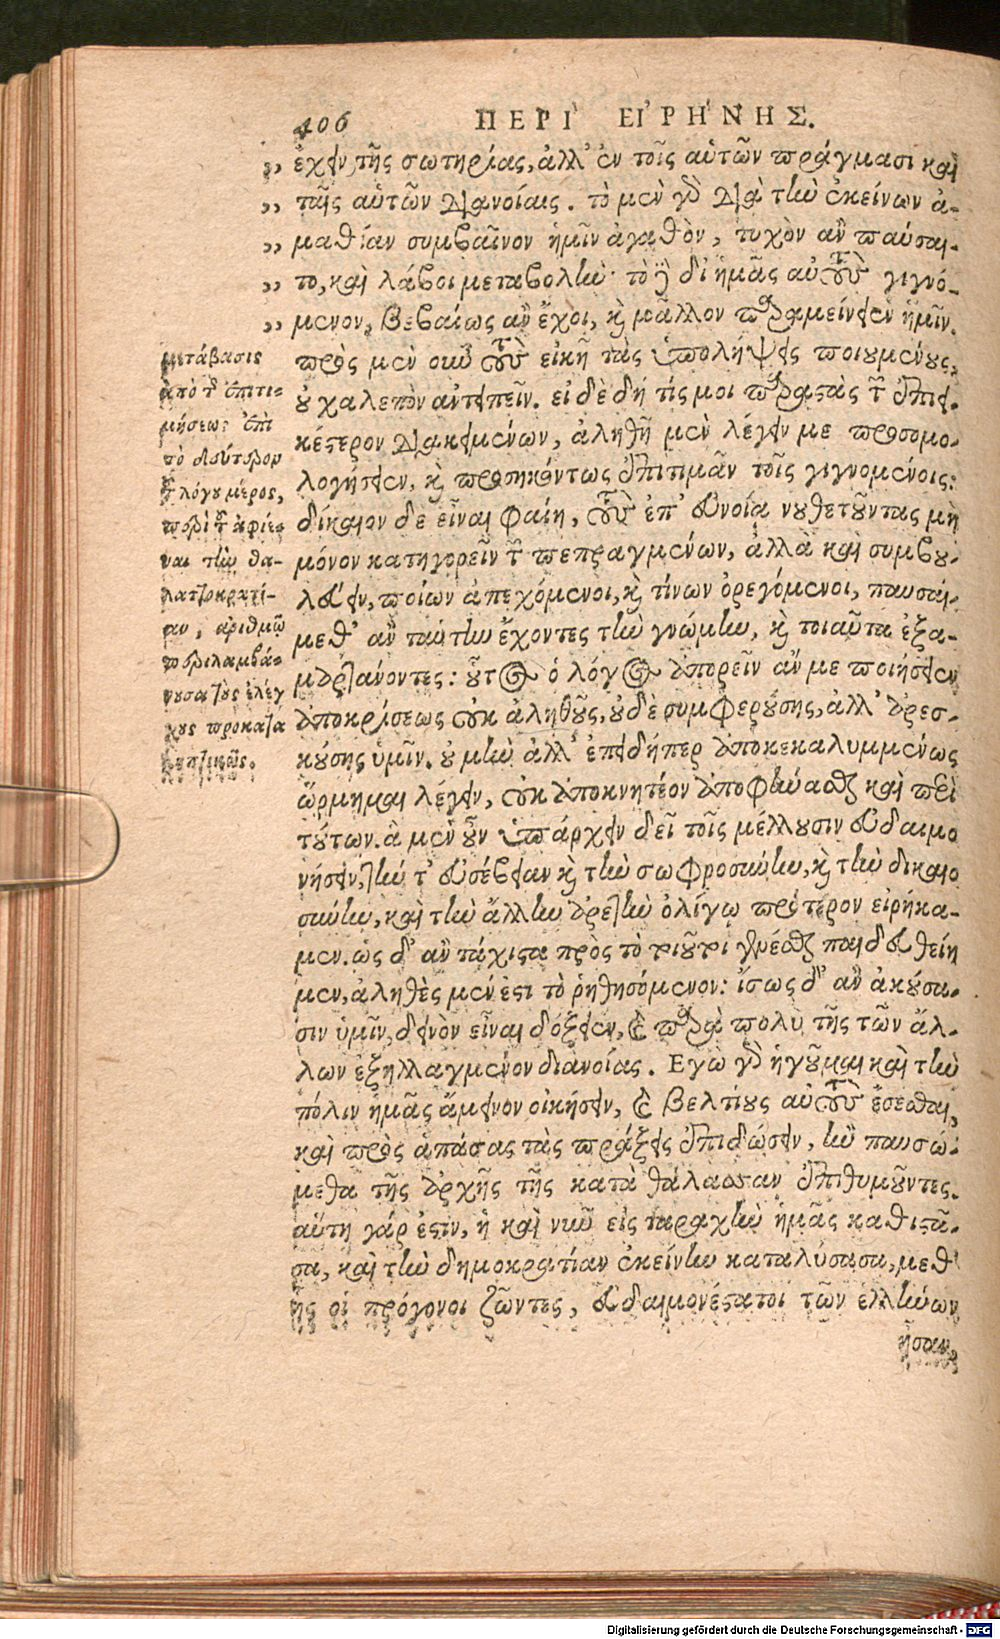 406 ΠΕΡΙ ΕΙΡΗΝΗΣ.
,, ἔχειν τῆς σωτηρίας, ἀλλ' ἐν τοῖς αὑτῶν πράγμασι καὶ
,, ταῖς αὑτῶν διανοίαις. τὸ μὲν γὸ διὰ τὴν ἐκείνων ἀ-
,, μαθίαν συμβαῖνον ἡμῖν ἀγαθὸν, τυχὸν ἂν παύσαι-
,, το, καὶ λάβοι μεταβολήν· τὸ δὲ δι' ἡμᾶς αὐτοὺς γιγνό-
,, μενον, βεβαίως ἂν ἔχοι, κὶ μᾶλλον παραμείνειεν ἡμῖν.
πρὸς μὲν οὖν τοὺς εἰκῆ τὰς ὑπολήψεις ποιουμένους,
οὐ χαλεπὸν ἀντειπεῖν. εἰ δὲ δή τίς μοι παραστὰς τῶν ἐπιει-
κέστερον διακειμένων, ἀληθῆ μὲν λέγειν με προσομο-
λογήσειεν, κὶ προσηκόντως ἐπιτιμᾶν τοῖς γιγνομένοις:
δίκαιον δὲ εἶναι φαίη, τοὺς ἐπ' εὐνοίᾳ νουθετοῦντας μὴ
μόνον κατηγορεῖν τῶν πεπραγμένων, ἀλλὰ καὶ συμβου-
λεύειν, ποίων ἀπεχόμενοι, κὶ τίνων ὀρεγόμενοι, παυσαί-
μεθ' ἂν ταύτην ἔχοντες τὴν γνώμην, κὶ τοιαῦτα ἐξα-
μαρτάνοντες: οὗτος ὁ λόγος ἀπορεῖν ἄν με ποιήσειεν
ἀποκρίσεως οὐκ ἀληθοῦς, οὐδὲ συμφερούσης, ἀλλ' ἀρεσ-
κούσης ὑμῖν. οὐ μὴν ἀλλ' ἐπειδήπερ ἀποκεκαλυμμένως
ὥρμημαι λέγειν, οὐκ ἀποκνητέον ἀποφήνασθαι καὶ περὶ
τούτων. ἃ μὲν οὖν ὑπάρχειν δεῖ τοῖς μέλλουσιν εὐδαιμο
νήσειν, τήν τ' εὐσέβειαν κὶ τὴν σωφροσύνην, κὶ τὴν δικαιο
σύνην, καὶ τὴν ἄλλην ἀρετὴν ὀλίγῳ πρότερον εἰρήκα-
μεν. ὡς δ' ἂν τάχιστα πρὸς τὸ τοιοῦτοι γενέσθαι παιδευθείη
μεν, ἀληθὲς μέν ἐστι τὸ ῥηθησόμενον: ἴσως δ' ἂν ἀκούσα-
σιν ὑμῖν, δεινὸν εἶναι δόξειεν, καὶ παρὰ πολὺ τῆς τῶν ἄλ-
λων ἐξηλλαγμένον διανοίας. Ἐγὼ γὸ ἡγοῦμαι καὶ τὴν
πόλιν ἡμᾶς ἄμεινον οἰκήσειν, καὶ βελτίους αὐτοὺς ἔσεσθαι,
καὶ πρὸς ἁπάσας τὰς πράξεις ἐπιδώσειν, ἢν παυσώ-
μεθα τῆς ἀρχῆς τῆς κατὰ θάλασσαν ἐπιθυμοῦντες.
αὕτη γάρ ἐστιν, ἡ καὶ νῦν εἰς ταραχὴν ἡμᾶς καθιστᾶ-
σα, καὶ τὴν δημοκρατίαν ἐκείνην καταλύσασα, μεθ'
ἧς οἱ πρόγονοι ζῶντες, εὐδαιμονέστατοι τῶν ἑλλήνων
ἦσαν,
μετάβασις
ἀπὸ τῆς ἐπιτι-
μήσεως ἐπὶ
τὸ δεύτερον
τοῦ λόγου μέρος,
περὶ τοῦ ἀφιέ-
ναι τὴν θα-
λαττοκρατί-
αν, ἀριθμῷ
περιλαμβά-
νουσα τοὺς ἐλέγ
χους προκατα